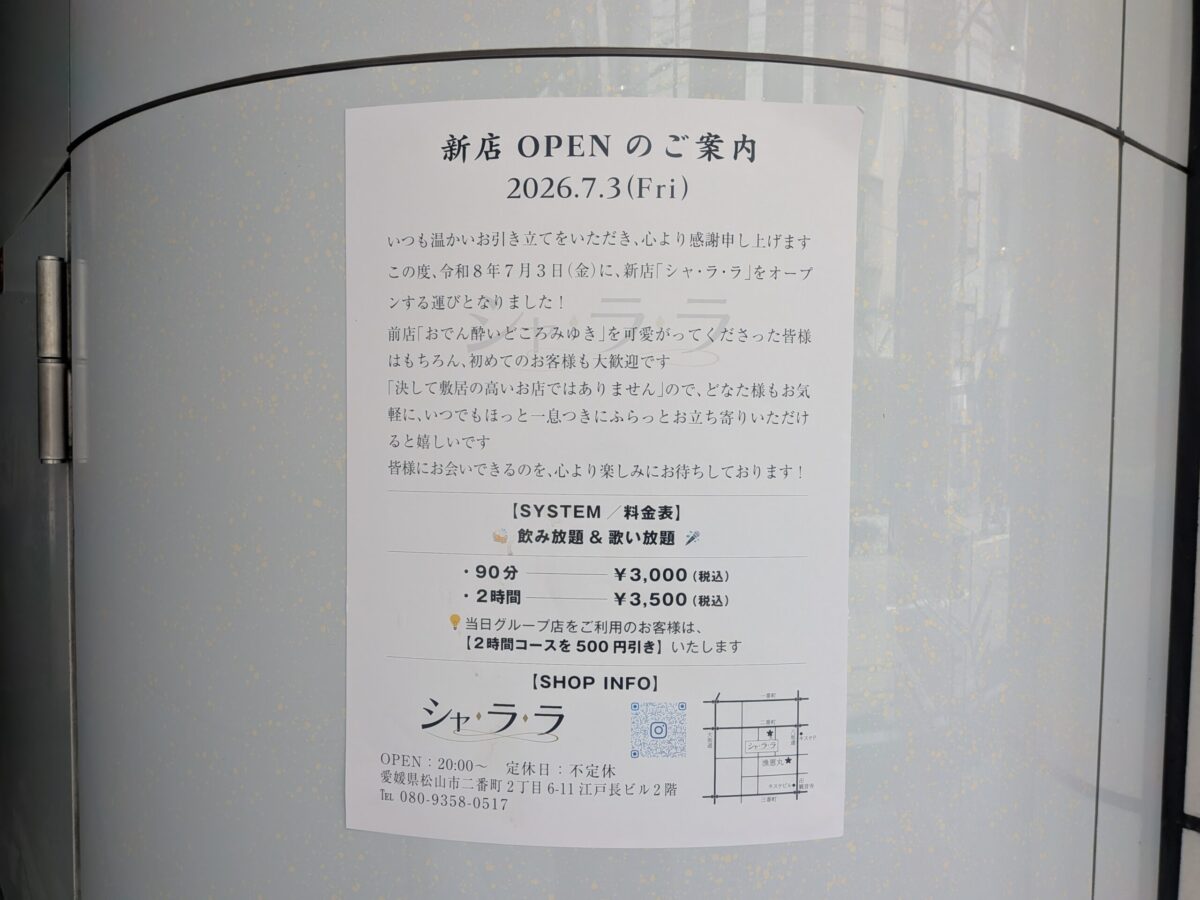 新店 OPEN のご案内
2026.7.3(Fri)
いつも温かいお引き立てをいただき、心より感謝申し上げます
この度、令和8年7月3日(金)に、新店「シャ・ラ・ラ」をオープ
ンする運びとなりました！
シャ・ラ・ラ
前店「おでん酔いどころみゆき」を可愛がってくださった皆様
はもちろん、初めてのお客様も大歓迎です
「決して敷居の高いお店ではありません」ので、どなた様もお気
軽に、いつでもほっと一息つきにふらっとお立ち寄りいただけ
ると嬉しいです
皆様にお会いできるのを、心より楽しみにお待ちしております！
【SYSTEM／料金表】
飲み放題 & 歌い放題
・90分 ¥3,000(税込)
・2時間 ¥3,500(税込)
当日グループ店をご利用のお客様は、
【2時間コースを500円引き】いたします
【SHOP INFO】
シャ・ラ・ラ
OPEN：20:00～ 定休日：不定休
愛媛県松山市二番町2丁目6-11 江戸長ビル2階
TEL 080-9358-0517
一番町
二番町
八坂通
シャ・ラ・ラ
漁恵丸
キスケビル
三番町